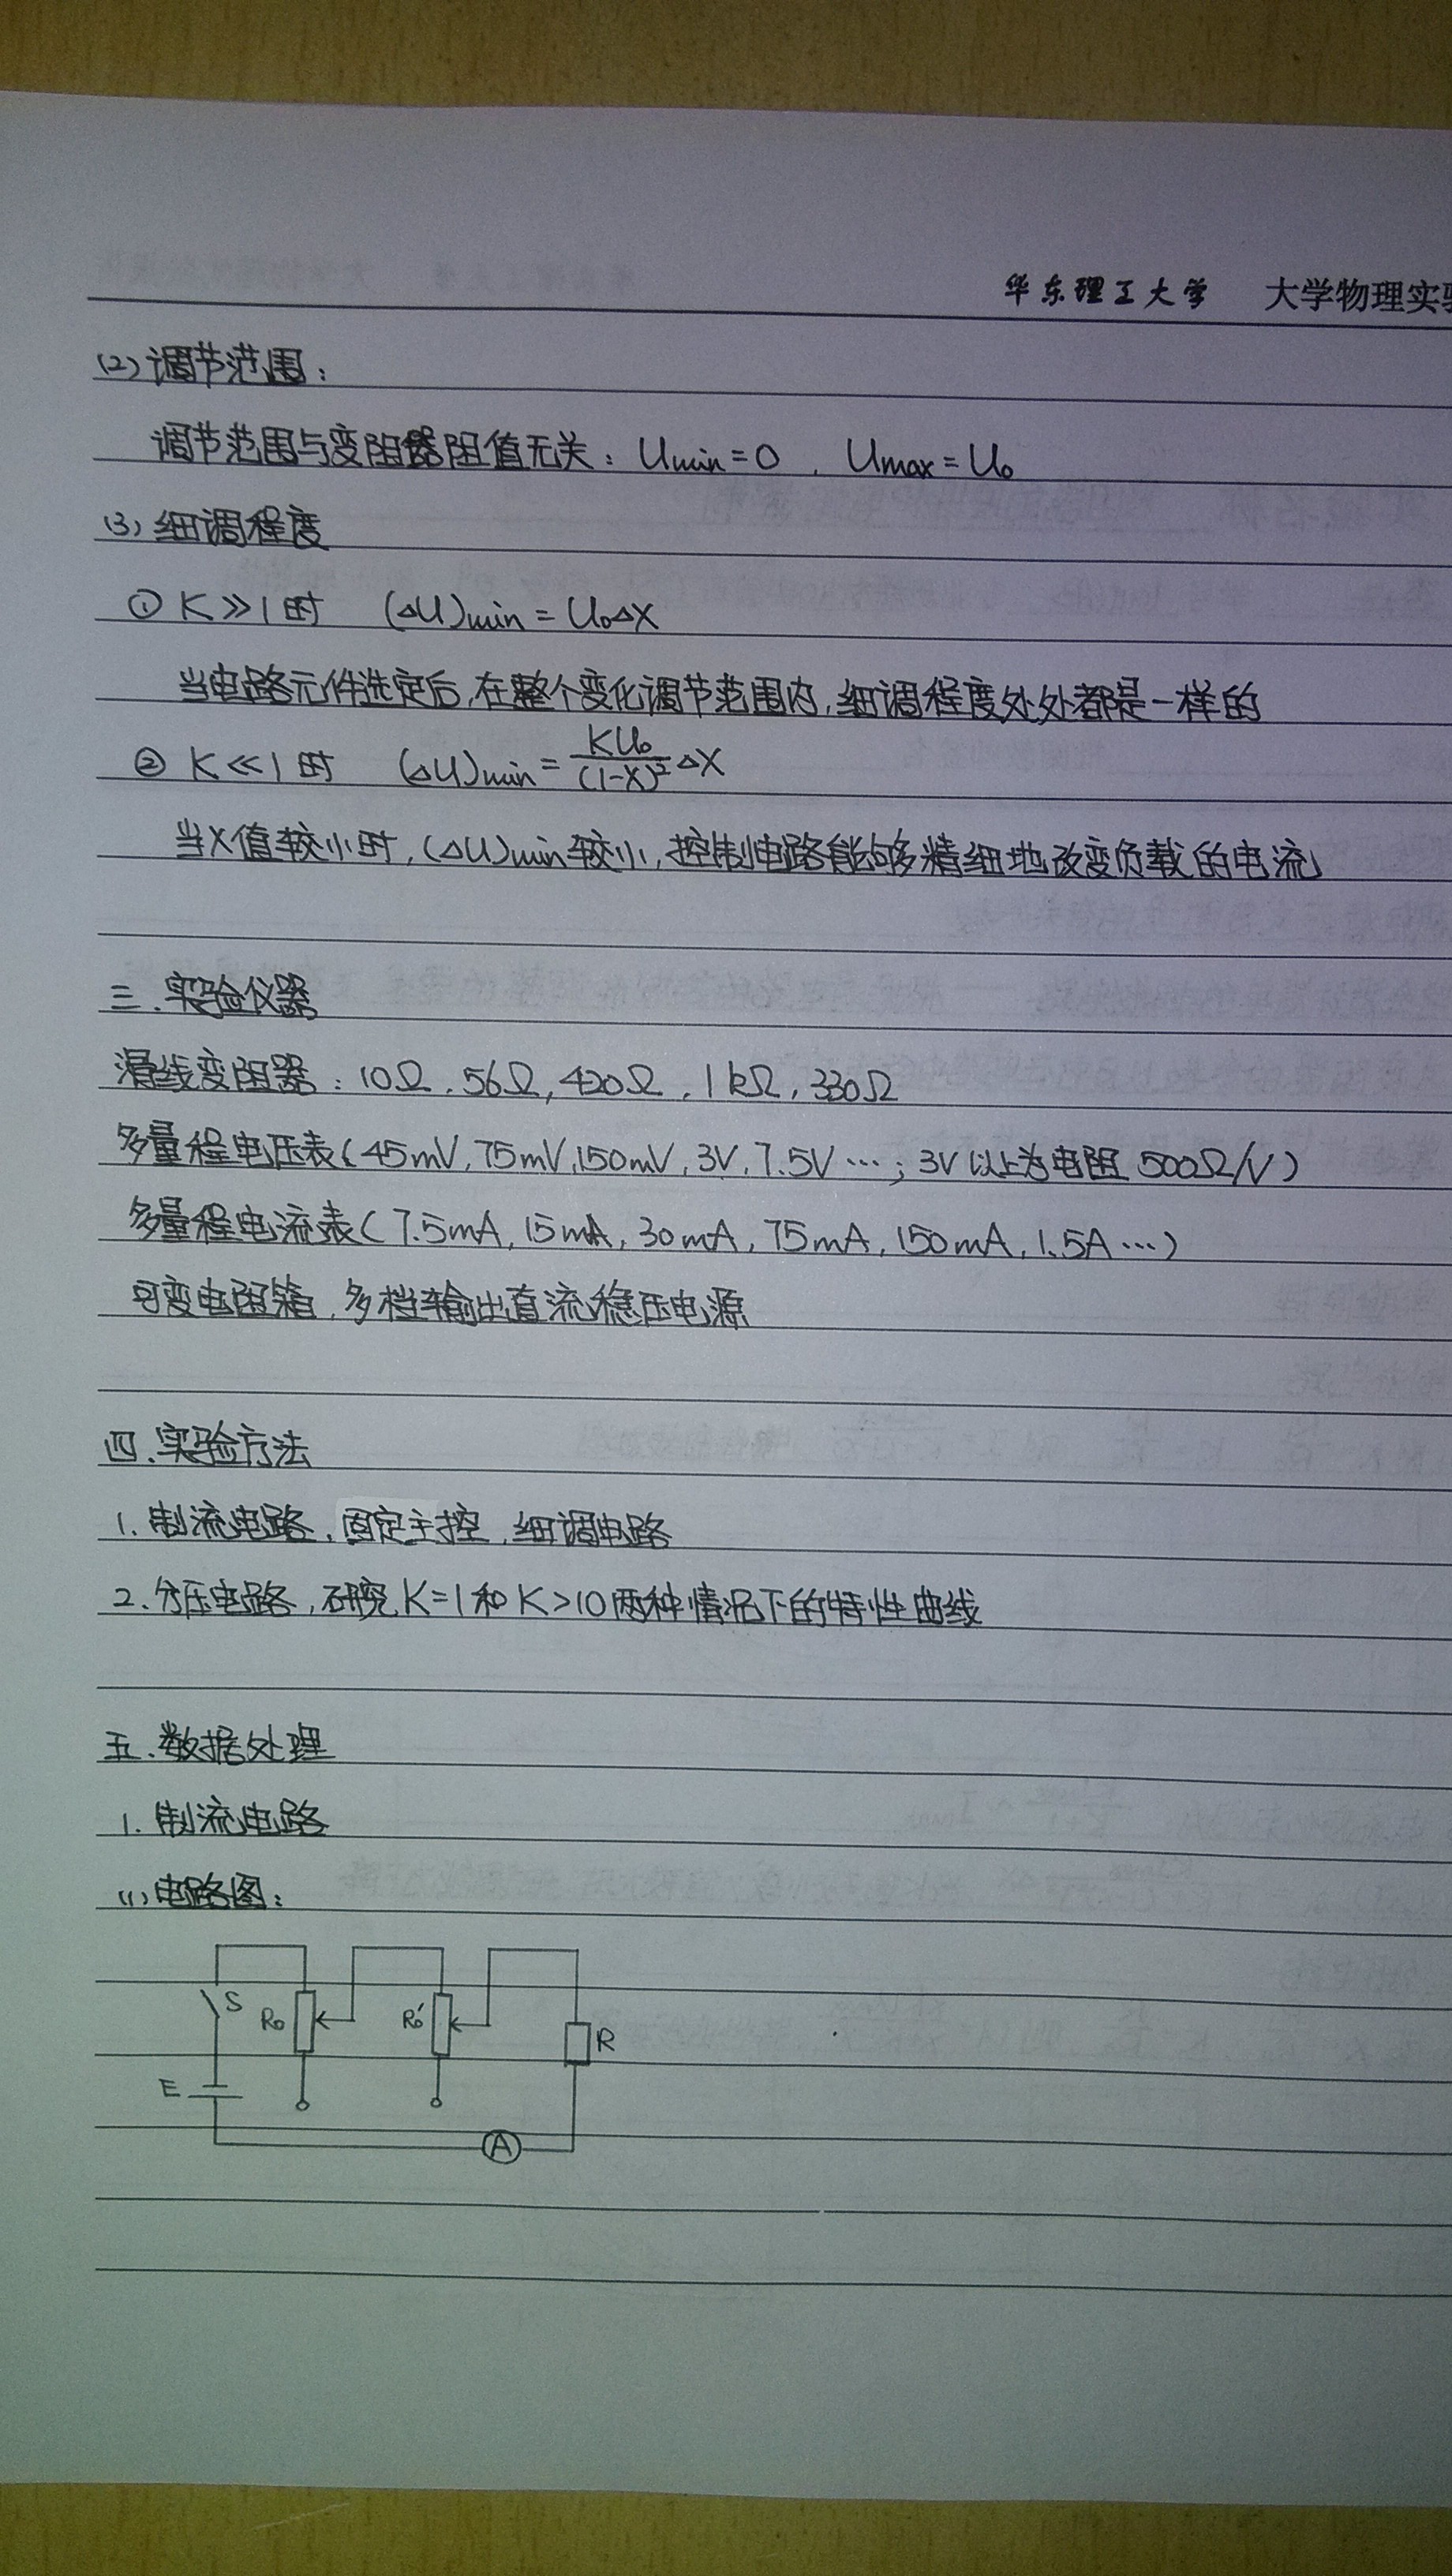 华东理工大学 大学物理实
(2) 调节范围：
调节范围与变阻器阻值无关：Umin=0，Umax=U₀
(3) 细调程度
① K≫1时 (ΔU)min=U₀ΔX
当电路元件选定后,在整个变化调节范围内,细调程度处处都是一样的
② K≪1时 (ΔU)min=KU₀/(1-X)²ΔX
当X值较小时,(ΔU)min较小,控制电路能够精细地改变负载的电流
三.实验仪器
滑线变阻器：10Ω、56Ω,420Ω、1kΩ,330Ω
多量程电压表(45mV,75mV,150mV,3V,7.5V…;3V以上为电阻500Ω/V)
多量程电流表(7.5mA,15mA,30mA,75mA,150mA,1.5A…)
可变电阻箱,多档输出直流稳压电源
四.实验方法
1.制流电路,固定主控,细调电路
2.分压电路,研究K=1和K>10两种情况下的特性曲线
五.数据处理
1.制流电路
(1)电路图：
S R₀ R₀′ R
E
A